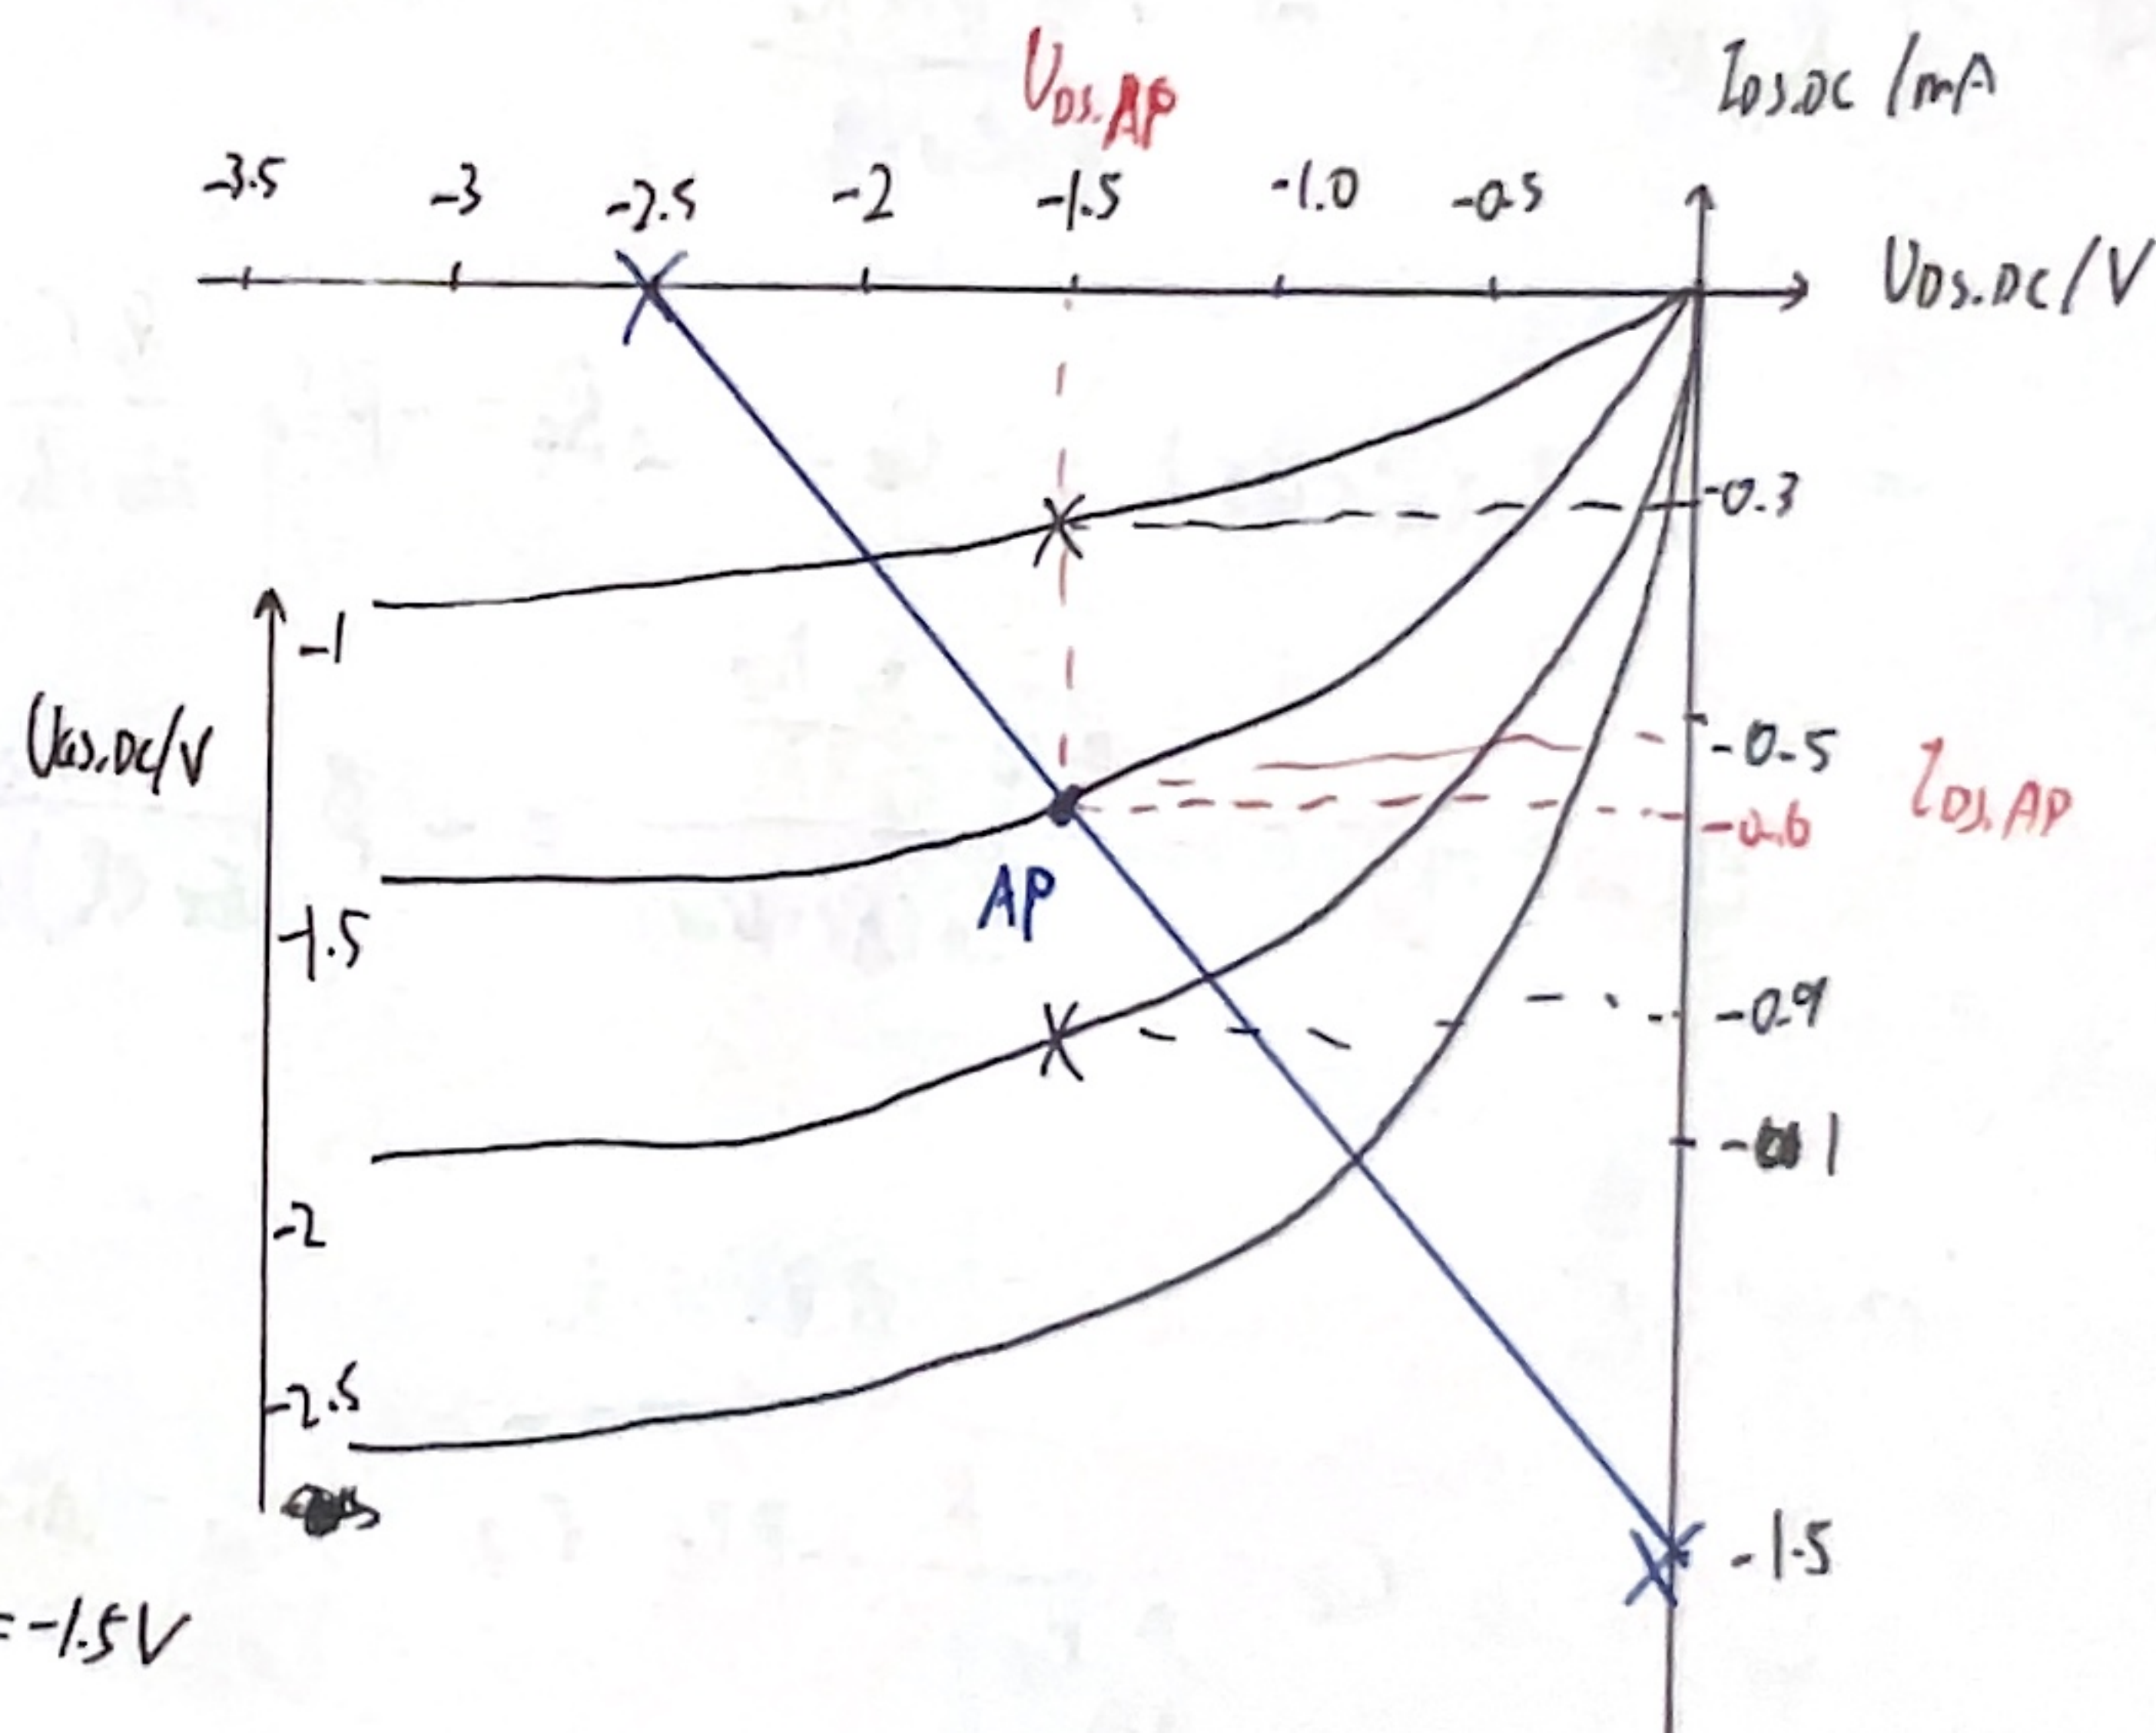 U_DS.AP
I_DS.DC /mA
-3.5 -3 -2.5 -2 -1.5 -1.0 -0.5
U_DS.DC/V
-0.3
-1
U_GS.DC/V
-0.5
I_DS.AP
-0.6
AP
-1.5
-0.9
-1
-2
-2.5
-1.5
=-1.5V